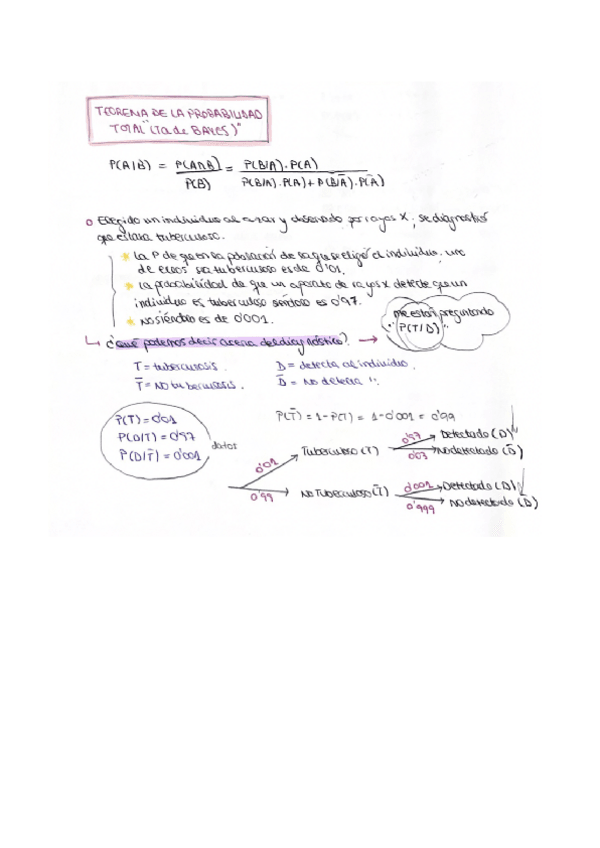 TEOREMA DE LA PROBABILIDAD
TOTAL "(Ta de BAYES)"
P(A|B) = P(A∩B) / P(B) = P(B/A)·P(A) / P(B/A)·P(A) + P(B/Ā)·P(Ā)
o Elegido un individuo al azar y observado por rayos X, se diagnosticó
que estaba tuberculoso.
* La P de que en la población de la que se eligió el individuo, uno
de ellos sea tuberculoso es de 0'01.
* La probabilidad de que un aparato de rayos x detecte que un
individuo es tuberculoso siéndolo es 0'97.
* No siéndolo es de 0'001.
me están preguntando
P(T/D)
↳ ¿Qué podemos decir acerca del diagnóstico? →
T = tuberculosis. D = detecta al individuo.
T̄ = NO tuberculosis. D̄ = No detecta "
P(T) = 0'01
P(D/T) = 0'97
P(D/T̄) = 0'001
datos
P(T̄) = 1 - P(T) = 1 - 0'001 = 0'99
0'01 Tuberculoso (T) 0'97 Detectado (D)
0'03 No detectado (D̄)
0'99 No Tuberculoso (T̄) 0'001 Detectado (D)
0'999 No detectado (D̄)